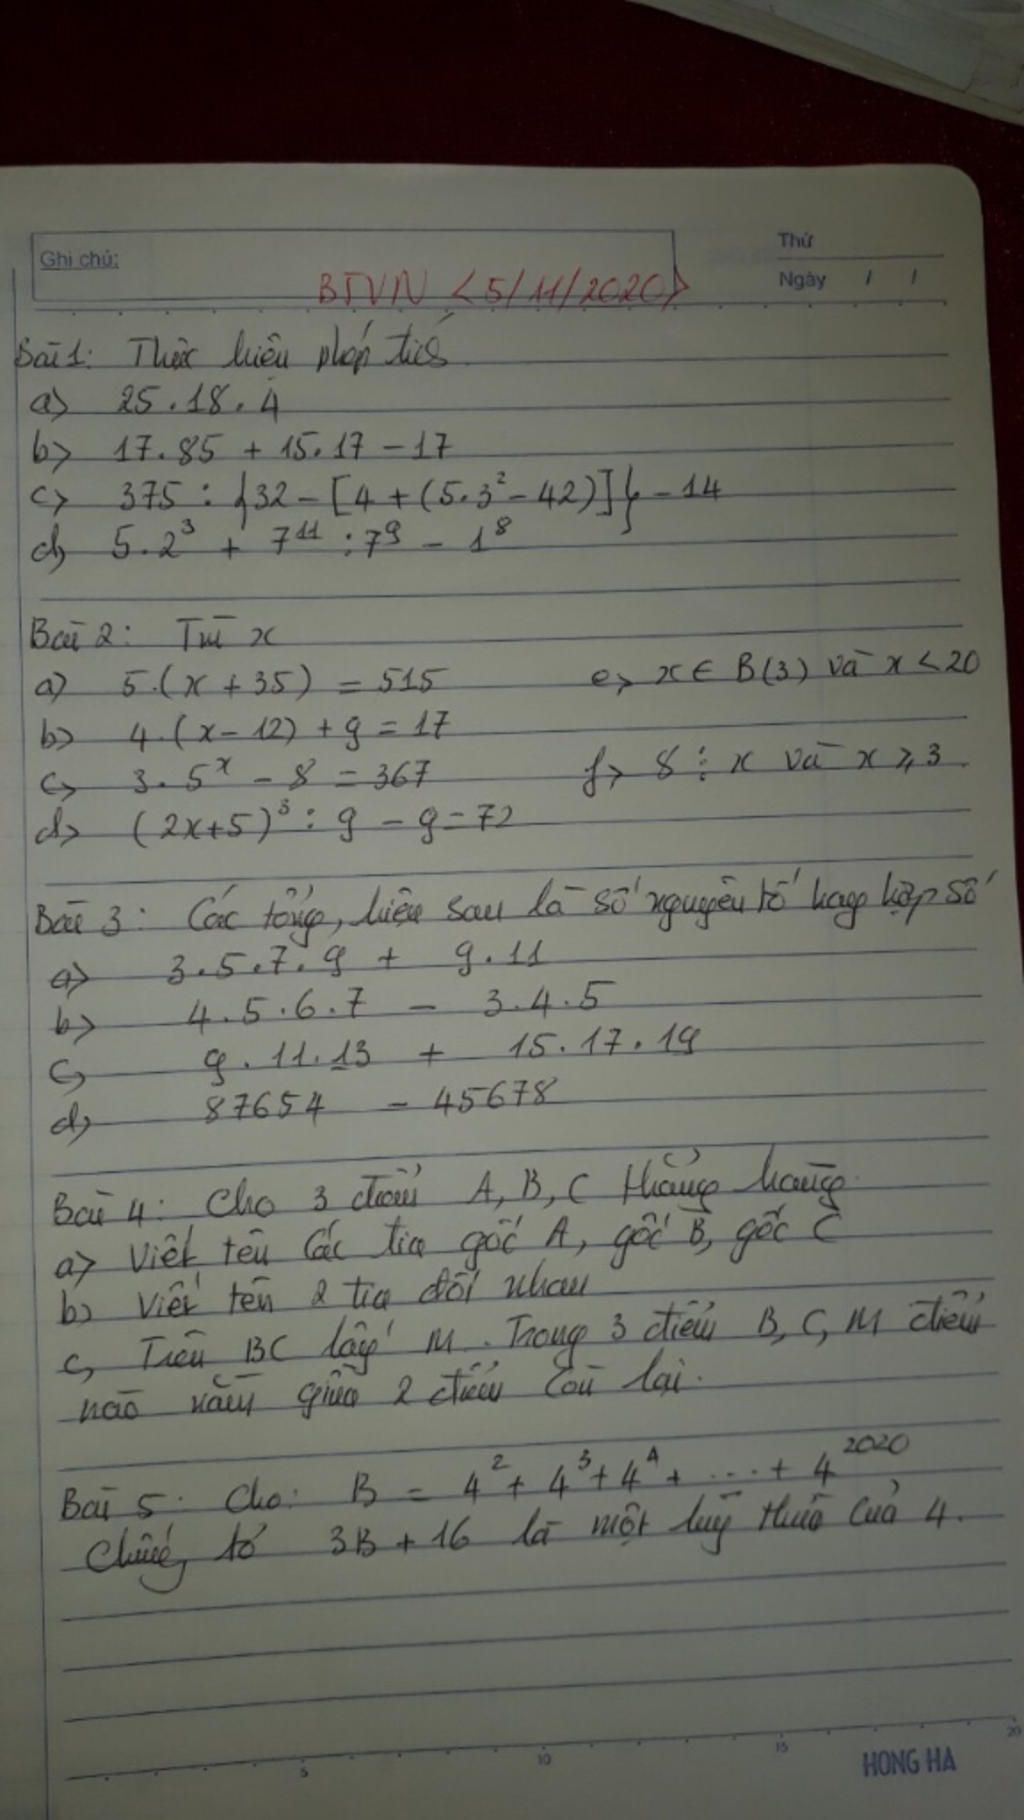 Ghi chú:
Thứ
Ngày / /
BTVN <5/11/2020>
Bài 1: Thực hiện phép tính
a> 25.18.4
b> 17.85 + 15.17 - 17
c> 375 : {32 - [4 + (5.3² - 42)]} - 14
d> 5.2³ + 7¹¹ : 7⁹ - 1⁸
Bài 2: Tìm x
a> 5.(x + 35) = 515
e> x ∈ B(3) và x < 20
b> 4.(x - 12) + 9 = 17
c> 3.5ˣ - 8 = 367
f> 8 ⋮ x và x ⩾ 3.
d> (2x+5)³ : 9 - 9 = 72
Bài 3: Các tổng, hiệu sau là số nguyên tố hay hợp số
a> 3.5.7.9 + 9.11
b> 4.5.6.7 - 3.4.5
c> 9.11.13 + 15.17.19
d> 87654 - 45678
Bài 4: Cho 3 điểm A, B, C thẳng hàng.
a> Viết tên các tia gốc A, gốc B, gốc C
b> Viết tên 2 tia đối nhau
c, Trên BC lấy M. Trong 3 điểm B, C, M điểm
nào nằm giữa 2 điểm còn lại.
Bài 5: Cho: B = 4² + 4³ + 4⁴ + ... + 4²⁰²⁰
Chứng tỏ 3B + 16 là một luỹ thừa của 4.
5 10 15 20
HONG HA